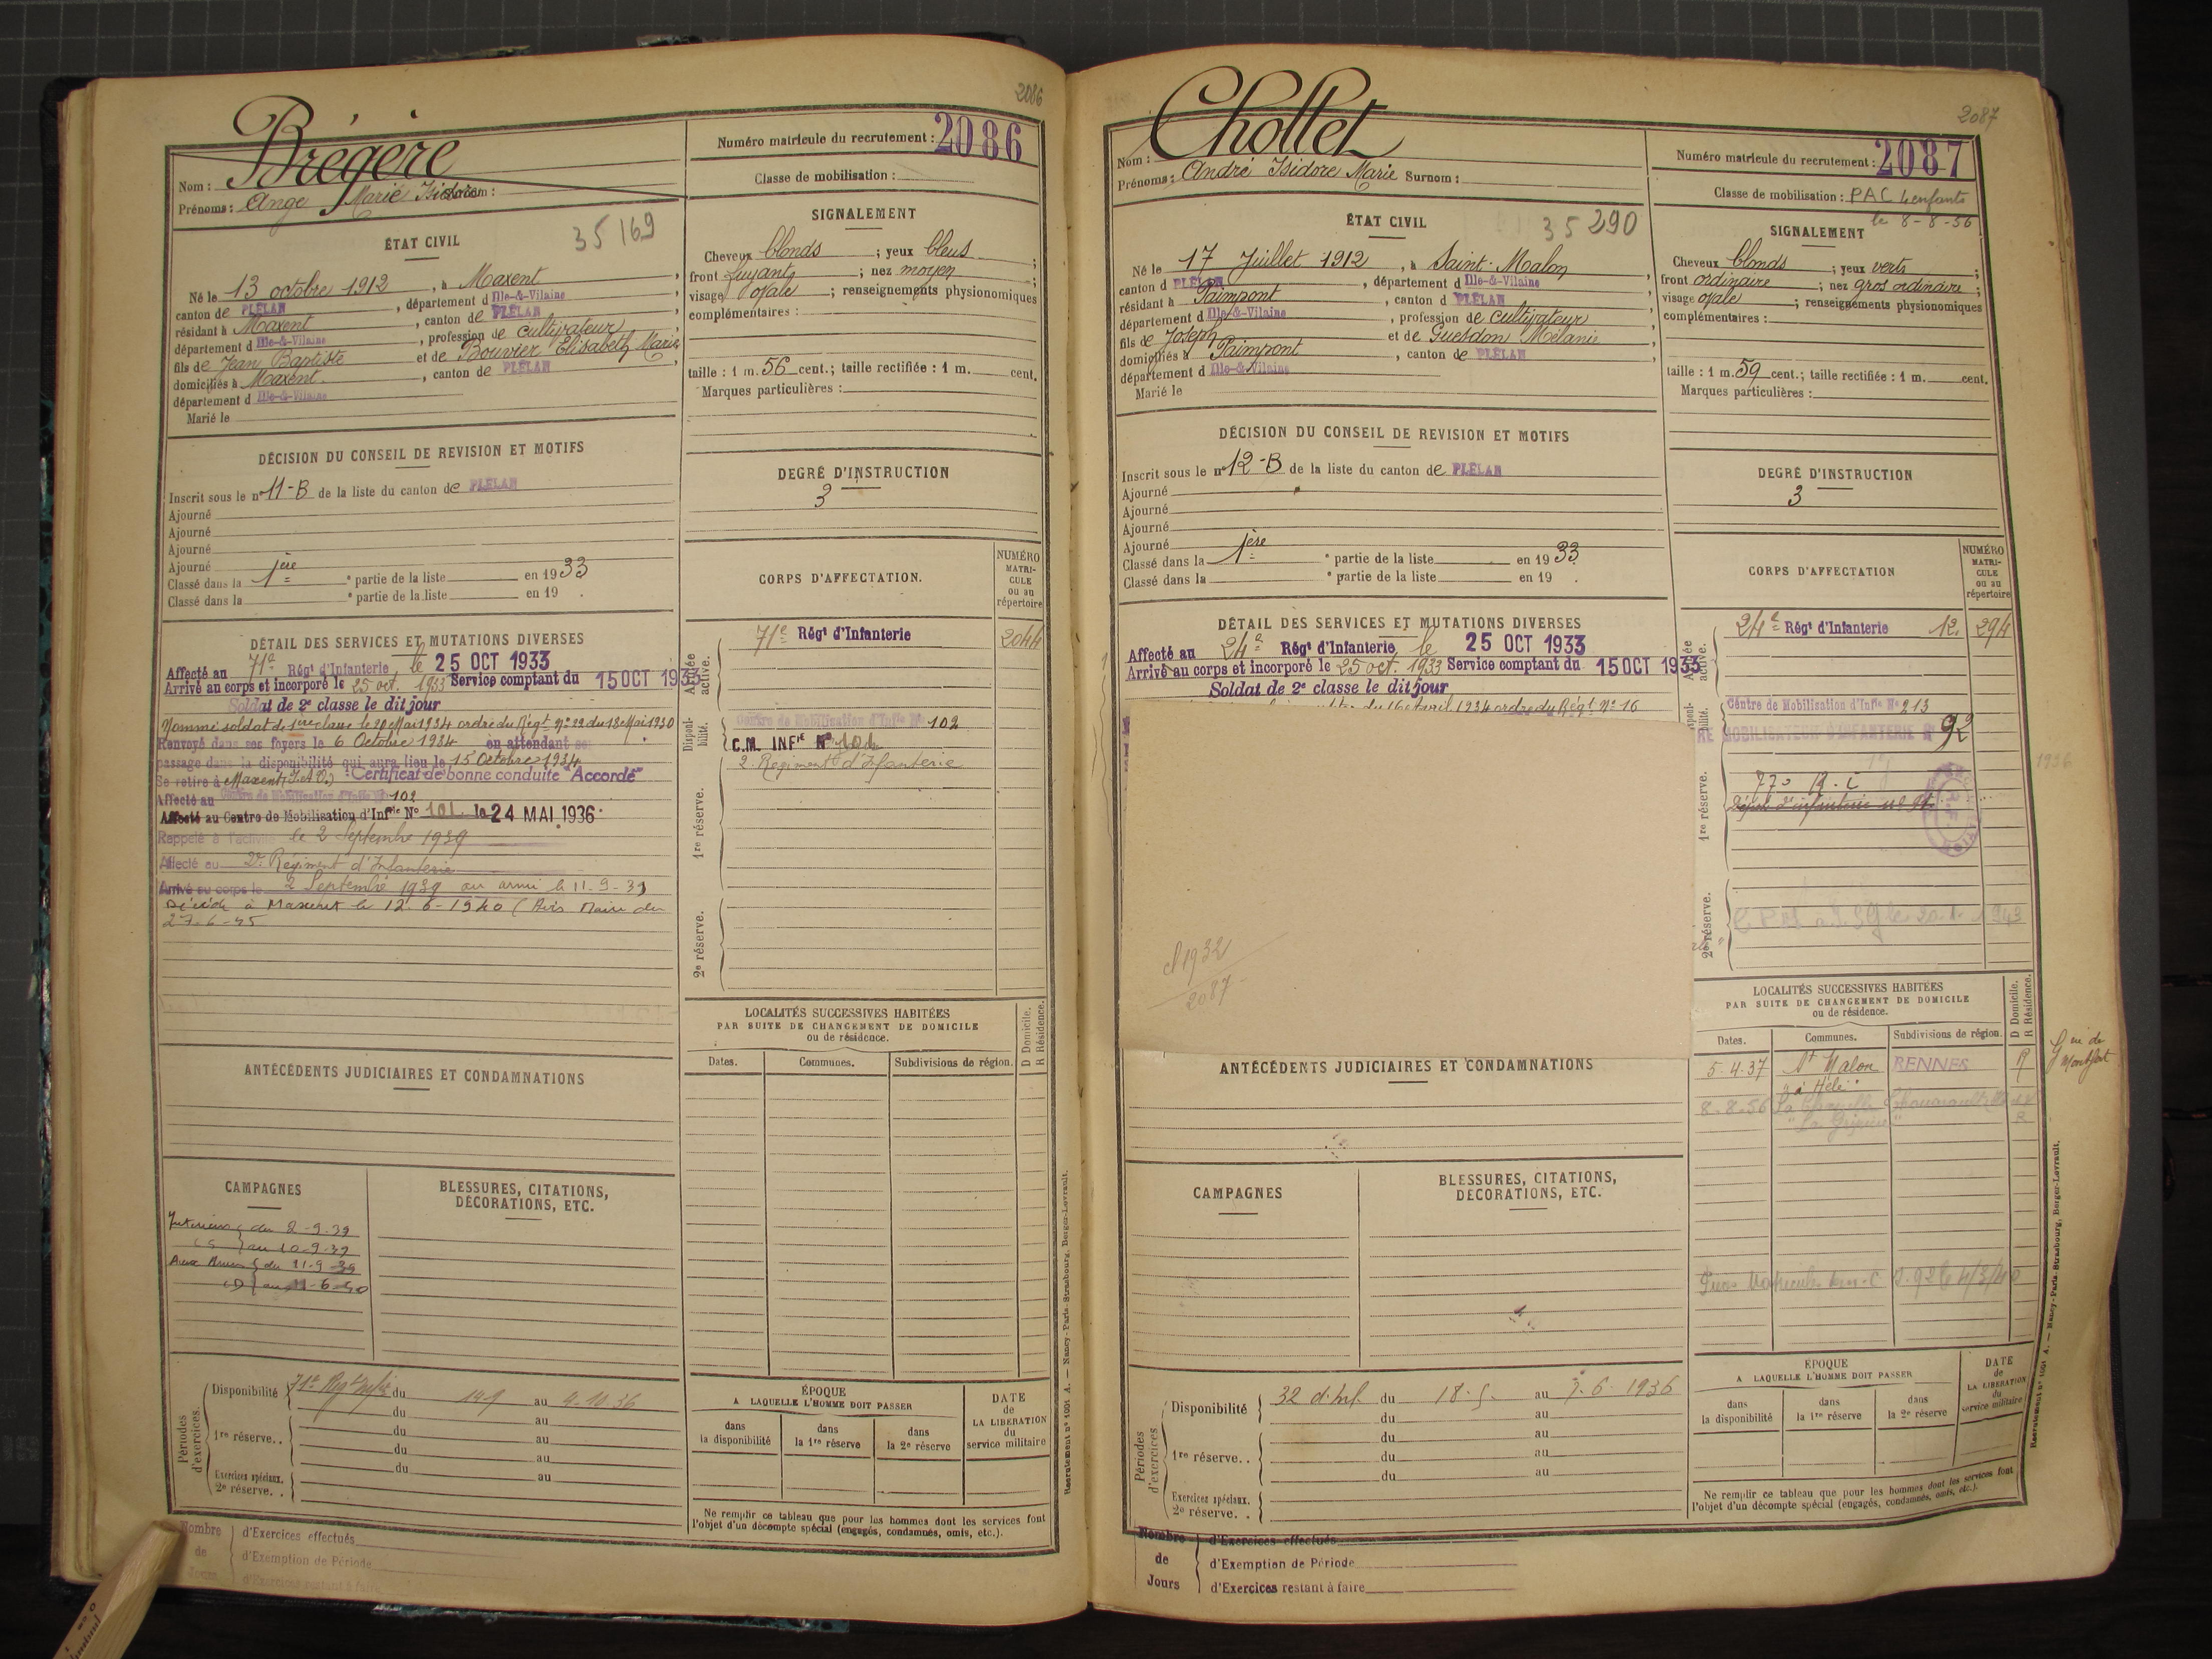 2086
Brégère
Nom :
Prénoms : Ange Marie Isidore
Numéro matricule du recrutement : 2086
Classe de mobilisation :
ÉTAT CIVIL
35 169
Né le 13 octobre 1912, à Maxent,
canton de PLÉLAN, département d Ille-&-Vilaine,
résidant à Maxent, canton de PLÉLAN,
département d Ille-&-Vilaine, profession de cultivateur,
fils de Jean Baptiste et de Bouvier Elisabeth Marie
domiciliés à Maxent, canton de PLÉLAN,
département d Ille-&-Vilaine
Marié le
SIGNALEMENT
Cheveux blonds ; yeux bleus ;
front fuyant ; nez moyen
visage ovale ; renseignements physionomiques
complémentaires :
taille : 1 m. 56 cent.; taille rectifiée : 1 m. cent.
Marques particulières :
DÉCISION DU CONSEIL DE REVISION ET MOTIFS
Inscrit sous le n° 11-B de la liste du canton de PLÉLAN
Ajourné
Ajourné
Ajourné
Ajourné
Classé dans la 1ère partie de la liste en 1933
Classé dans la partie de la liste en 19 .
DEGRÉ D'INSTRUCTION
3
CORPS D'AFFECTATION.
NUMÉRO MATRI-CULE ou au répertoire
Armée active.
71e Régt d'Infanterie 2044
Disponi-bilité.
Centre de Mobilisation d'Infie No 102
C.M. INFie No 101
2e Régiment d'Infanterie
1re réserve.
2e réserve.
DÉTAIL DES SERVICES ET MUTATIONS DIVERSES
Affecté au 71e Régt d'Infanterie le 25 OCT 1933
Arrivé au corps et incorporé le 25 oct. 1933 Service comptant du 15 OCT 1933
Soldat de 2e classe le dit jour
Nommé soldat de 1ère classe le 20 Mai 1934 ordre du Régt No 22 du 18 Mai 1930
Renvoyé dans ses foyers le 6 Octobre 1934 en attendant son
passage dans la disponibilité qui aura lieu le 15 Octobre 1934
Se retire à Maxent (I. et V.) Certificat de bonne conduite "Accordé"
Affecté au Centre de Mobilisation d'Infie No 102
Affecté au Centre de Mobilisation d'Infie No 101 le 24 MAI 1936
Rappelé à l'activité le 2 Septembre 1939
Affecté au 2e Régiment d'Infanterie
Arrivé au corps le 2 Septembre 1939 aux armées le 11-9-39
Décédé à Maxent le 12-6-1940 (Avis Maire du
27-6-45
ANTÉCÉDENTS JUDICIAIRES ET CONDAMNATIONS
LOCALITÉS SUCCESSIVES HABITÉES
PAR SUITE DE CHANGEMENT DE DOMICILE
ou de résidence.
D Domicile.
R Résidence.
Dates. Communes. Subdivisions de région.
CAMPAGNES
Intérieur du 2-9-39
au 10-9-39
Aux Armées du 11-9-39
(D) au 11-6-40
BLESSURES, CITATIONS,
DÉCORATIONS, ETC.
Périodes d'exercices.
Disponibilité 71e Régt Infie du 14 9 au 4-10-36
du au
1re réserve.. du au
du au
du au
Exercices spéciaux.
2e réserve. .
ÉPOQUE
A LAQUELLE L'HOMME DOIT PASSER
dans la disponibilité
dans la 1re réserve
dans la 2e réserve
DATE de LA LIBÉRATION du service militaire
Ne remplir ce tableau que pour les hommes dont les services font
l'objet d'un décompte spécial (engagés, condamnés, omis, etc.).
Nombre de Jours
d'Exercices effectués
d'Exemption de Période
d'Exercices restant à faire
Recrutement n° 1001 A. — Nancy-Paris-Strasbourg, Berger-Levrault.
2087
Chollet
Nom :
Prénoms : André Isidore Marie Surnom :
Numéro matricule du recrutement : 2087
Classe de mobilisation : PAC 4 enfants
le 8-8-56
ÉTAT CIVIL
35 290
Né le 17 Juillet 1912, à Saint-Malon,
canton d PLÉLAN, département d Ille-&-Vilaine,
résidant à Paimpont, canton d PLÉLAN,
département d Ille-&-Vilaine, profession de cultivateur,
fils de Joseph et de Guesdon Mélanie,
domiciliés à Paimpont, canton d PLÉLAN,
département d Ille-&-Vilaine
Marié le
SIGNALEMENT
Cheveux blonds ; yeux verts ;
front ordinaire ; nez gros ordinaire ;
visage ovale ; renseignements physionomiques
complémentaires :
taille : 1 m. 59 cent.; taille rectifiée : 1 m. cent.
Marques particulières :
DÉCISION DU CONSEIL DE REVISION ET MOTIFS
Inscrit sous le n° 12-B de la liste du canton de PLÉLAN
Ajourné
Ajourné
Ajourné
Ajourné
Classé dans la 1ère partie de la liste en 1933
Classé dans la partie de la liste en 19 .
DEGRÉ D'INSTRUCTION
3
CORPS D'AFFECTATION
NUMÉRO MATRI-CULE ou au répertoire
24e Régt d'Infanterie 12. 294
Centre de Mobilisation d'Infie No 213
MOBILISATEUR D'INFANTERIE No 92
1936
77e R.I
Dépôt d'infanterie
1re réserve.
2e réserve.
DÉTAIL DES SERVICES ET MUTATIONS DIVERSES
Affecté au 24e Régt d'Infanterie le 25 OCT 1933
Arrivé au corps et incorporé le 25 oct. 1933 Service comptant du 15 OCT 1933
Soldat de 2e classe le dit jour
du 16 avril 1934 ordre du Régt No 16
cl 1932
2087
ANTÉCÉDENTS JUDICIAIRES ET CONDAMNATIONS
LOCALITÉS SUCCESSIVES HABITÉES
PAR SUITE DE CHANGEMENT DE DOMICILE
ou de résidence.
D Domicile.
R Résidence.
Dates. Communes. Subdivisions de région.
5-4-37 St Malon RENNES R
"à Hélé"
Gie de Montfort
8-8-56 La Chapelle
CAMPAGNES
BLESSURES, CITATIONS,
DÉCORATIONS, ETC.
Périodes d'exercices
Disponibilité 32 d'Inf. du 18-5- au 7-6-1936
du au
du au
1re réserve.. du au
du au
Exercices spéciaux.
2e réserve. .
ÉPOQUE
A LAQUELLE L'HOMME DOIT PASSER
dans la disponibilité
dans la 1re réserve
dans la 2e réserve
DATE de LA LIBÉRATION du service militaire
Ne remplir ce tableau que pour les hommes dont les services font
l'objet d'un décompte spécial (engagés, condamnés, omis, etc.).
Nombre de Jours
d'Exercices effectués
d'Exemption de Période
d'Exercices restant à faire
Recrutement n° 1001 A. — Nancy-Paris-Strasbourg, Berger-Levrault.